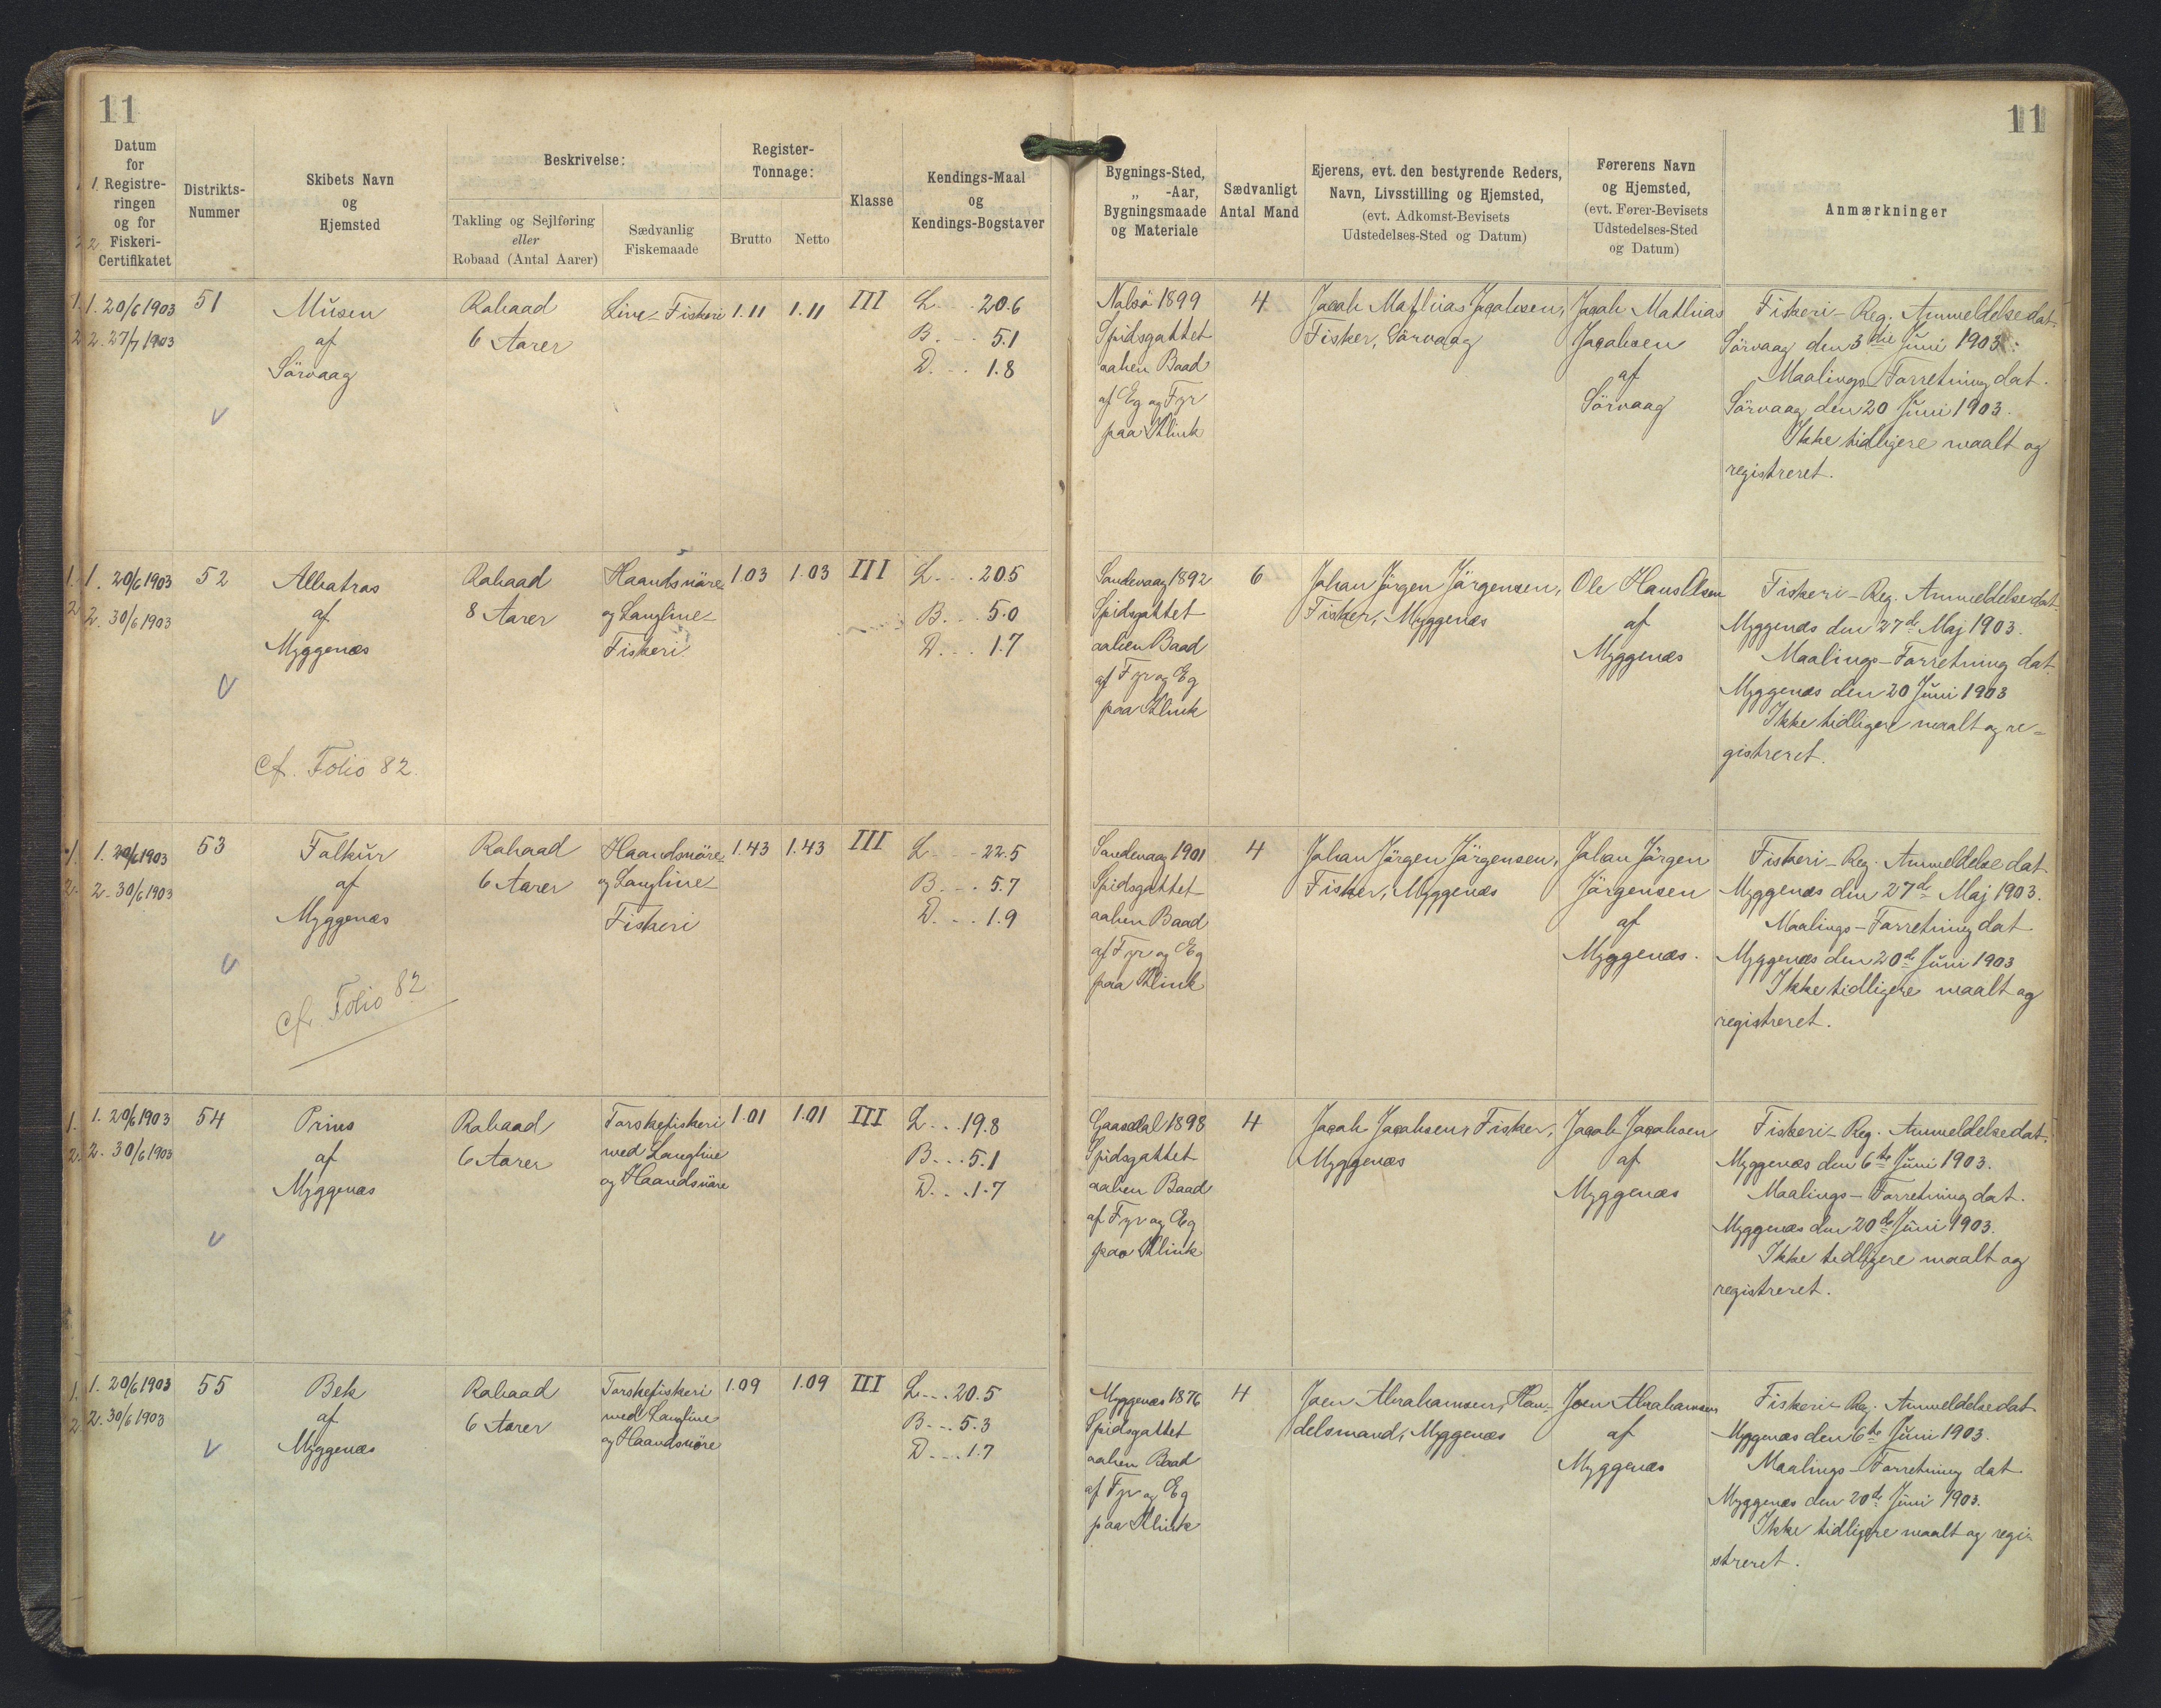 11
11
Datum
for
Registre-
ringen
og for
Fiskeri-
Certifikatet
Distrikts-
Nummer
Skibets Navn
og
Hjemsted
Beskrivelse:
Takling og Sejlføring
eller
Robaad (Antal Aarer)
Sædvanlig
Fiskemaade
Register-
Tonnage:
Brutto
Netto
Klasse
Kendings-Maal
og
Kendings-Bogstaver
Bygnings-Sted,
„ -Aar,
Bygningsmaade
og Materiale
Sædvanligt
Antal Mand
Ejerens, evt. den bestyrende Reders,
Navn, Livsstilling og Hjemsted,
(evt. Adkomst-Bevisets
Udstedelses-Sted og Datum)
Førerens Navn
og Hjemsted,
(evt. Fører-Bevisets
Udstedelses-Sted
og Datum)
Anmærkninger
1. 20/6 1903
2. 27/7 1903
51
Musen
af
Sörvaag
Robaad
6 Aarer
Line-Fiskeri
1.11
1.11
III
L. . . 20.6
B. . . . 5.1
D. . . 1.8
Nolsö 1899
Spidsgattet
aaben Baad
af Eg og Fyr
paa Klink
4
Jacob Mathias Jacobsen,
Fisker, Sörvaag
Jacob Mathias
Jacobsen
af
Sörvaag
Fiskeri-Reg. Anmeldelse dat.
Sörvaag den 3die Juni 1903.
Maalings-Forretning dat.
Sörvaag den 20 Juni 1903.
Ikke tidligere maalt og
registreret.
1. 20/6 1903
2. 30/6 1903
52
Albatras
af
Myggenæs
cf. Folio 82.
Robaad
8 Aarer
Haandsnöre
og Langline-
Fiskeri
1.03
1.03
III
L. . . 20.5
B. . . 5.0
D. . . . 1.7
Sandevaag 1892
Spidsgattet
aaben Baad
af Fyr og Eg
paa Klink
6
Johan Jörgen Jörgensen,
Fisker, Myggenæs
Ole Hans Olsen
af
Myggenæs
Fiskeri-Reg. Anmeldelse dat.
Myggenæs den 27de Maj 1903.
Maalings-Forretning dat.
Myggenæs den 20 Juni 1903
Ikke tidligere maalt og re-
gistreret.
1. 20/6 1903
2. 30/6 1903
53
Falkur
af
Myggenæs
cfr. Folio 82
Robaad
6 Aarer
Haandsnöre
og Langline-
Fiskeri
1.43
1.43
III
L. . . 22.5
B. . . 5.7
D. . . . 1.9
Sandevaag 1901
Spidsgattet
aaben Baad
af Fyr og Eg
paa Klink
4
Johan Jörgen Jörgensen,
Fisker, Myggenæs
Johan Jörgen
Jörgensen
af
Myggenæs.
Fiskeri-Reg. Anmeldelse dat
Myggenæs den 27de Maj 1903.
Maalings-Forretning dat
Myggenæs den 20de Juni 1903
Ikke tidligere maalt og
registreret.
1. 20/6 1903
2. 30/6 1903
54
Prins
af
Myggenæs
Robaad
6 Aarer
Torskefiskeri
med Langline
og Haandsnöre
1.01
1.01
III
L. . . 19.8
B. . . 5.1
D. . . 1.7
Gaasedal 1898
Spidsgattet
aaben Baad
af Fyr og Eg
paa Klink
4
Jacob Jacobsen, Fisker,
Myggenæs
Jacob Jacobsen
af
Myggenæs
Fiskeri-Reg. Anmeldelse dat.
Myggenæs den 6te Juni 1903.
Maalings-Forretning dat.
Myggenæs den 20de Juni 1903.
Ikke tidligere maalt og
registreret.
1. 20/6 1903
2. 30/6 1903
55
Bek
af
Myggenæs
Robaad
6 Aarer
Torskefiskeri
med Langline
og Haandsnöre
1.09
1.09
III
L. . . 20.5
B. . . 5.3
D. . . . 1.7
Myggenæs 1876
Spidsgattet
aaben Baad
af Fyr og Eg
paa Klink
4
Joen Abrahamsen, Han-
delsmand, Myggenæs
Joen Abrahamsen
af
Myggenæs
Fiskeri-Reg. Anmeldelse dat
Myggenæs den 6te Juni 1903.
Maalings-Forretning dat
Myggenæs den 20de Juni 1903.
Ikke tidligere maalt og regi-
streret.